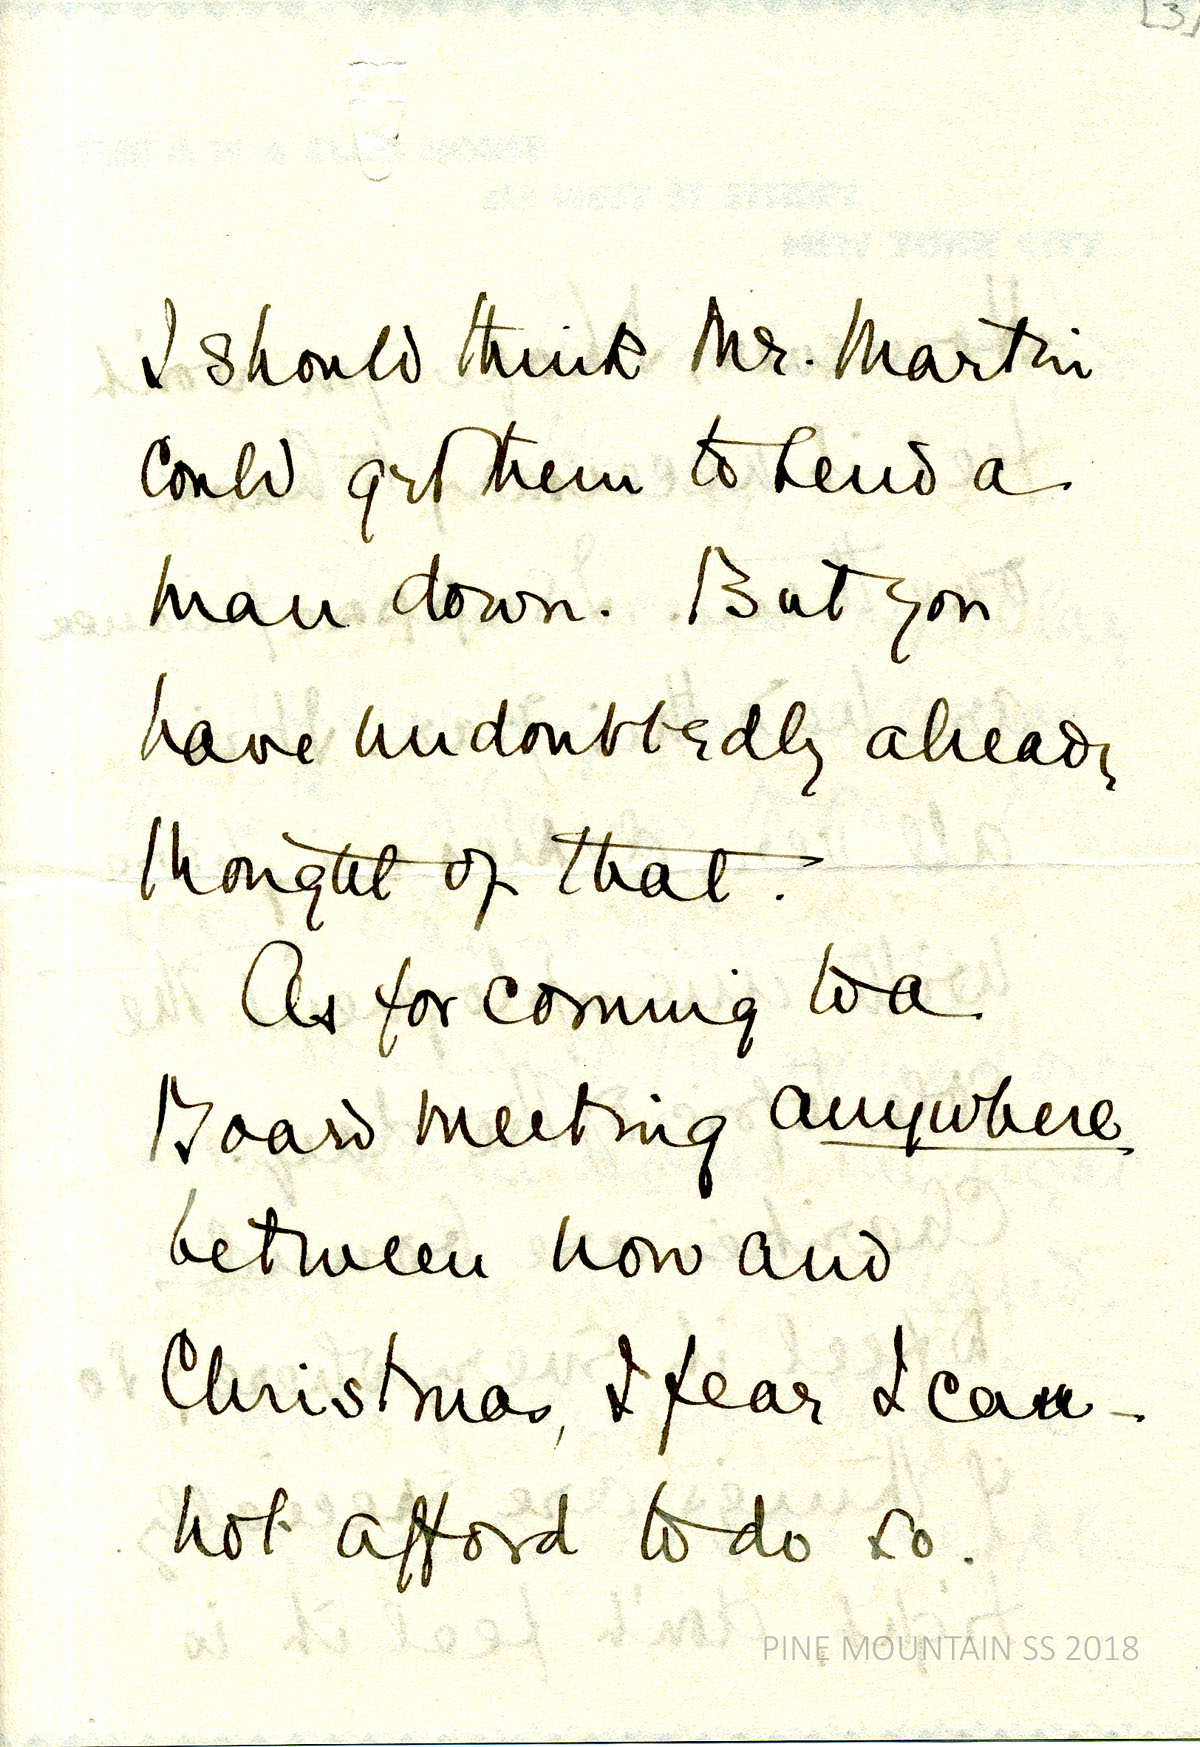 [3]
I should think Mr. Martin
could get them to send a
man down. But you
have undoubtedly already
thought of that.
As for coming to a
Board meeting anywhere
between now and
Christmas, I fear I can-
not afford to do so.
PINE MOUNTAIN SS 2018